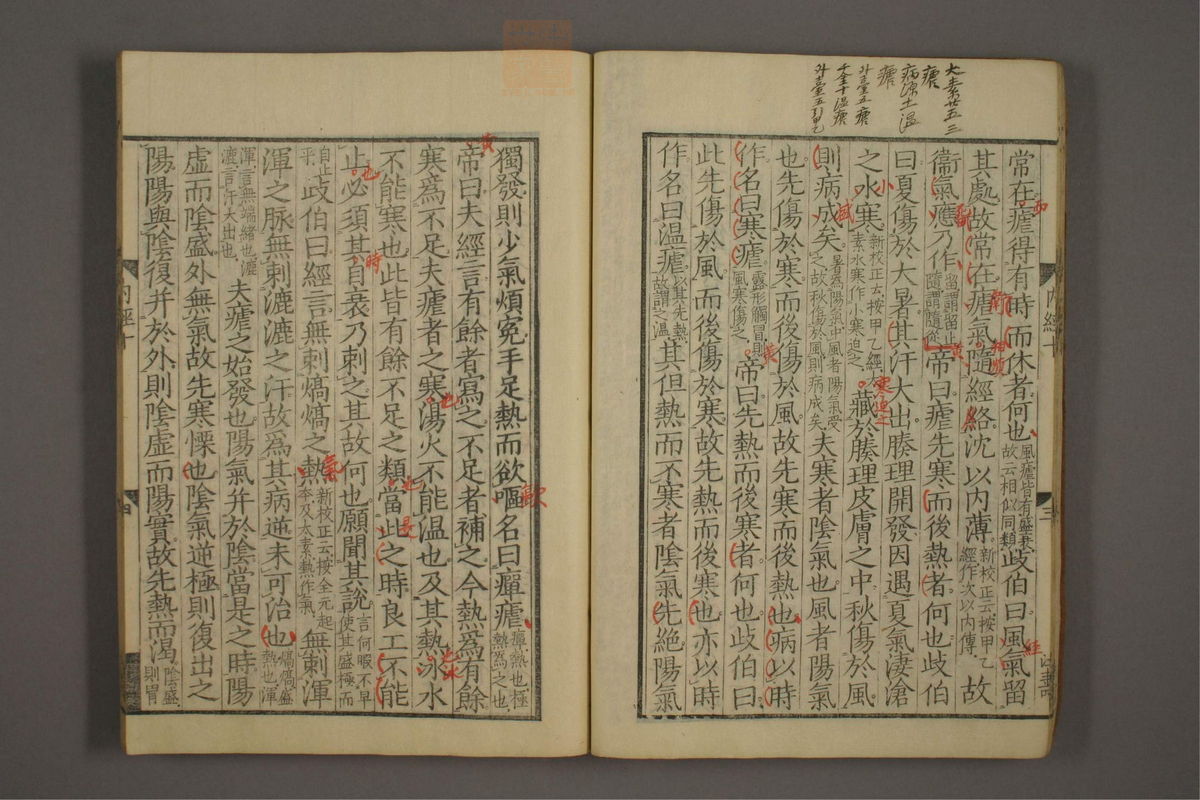 大素廿五三
瘧
病源十一温
瘧
外臺五瘧
千金十温瘧
常在瘧得有時而休者何也風瘧皆有盛衰故云相似同類歧伯曰風氣留
其處故常在瘧氣隨經絡沈以内薄新校正云按甲乙經作次以内傳故
衞氣應乃作留謂留止隨謂隨從帝曰瘧先寒而後熱者何也歧伯
曰夏傷於大暑其汗大出腠理開發因遇夏氣淒滄
之水寒新校正云按甲乙經太素水寒作小寒迫之藏於腠理皮膚之中秋傷於風
則病成矣暑爲陽氣中風者陽氣受之故秋傷於風則病成矣夫寒者陰氣也風者陽氣
也先傷於寒而後傷於風故先寒而後熱也病以時
作名曰寒瘧露形觸冒則風寒傷之帝曰先熱而後寒者何也歧伯曰
此先傷於風而後傷於寒故先熱而後寒也亦以時
作名曰温瘧以其先熱故謂之温其但熱而不寒者陰氣先絶陽氣
獨發則少氣煩冤手足熱而欲嘔名曰癉瘧癉熱也極熱爲之也
帝曰夫經言有餘者寫之不足者補之今熱爲有餘
寒爲不足夫瘧者之寒湯火不能温也及其熱冰水
不能寒也此皆有餘不足之類當此之時良工不能
止必須其自衰乃刺之其故何也願聞其說言何暇不早使其盛極而
自止乎歧伯曰經言無刺熇熇之熱新校正云按全元起本及太素熱作氣無刺渾
渾之脉無刺漉漉之汗故爲其病逆未可治也熇熇盛熱也渾
渾言無端緒也漉漉言汗大出也夫瘧之始發也陽氣并於陰當是之時陽
虚而陰盛外無氣故先寒慄也陰氣逆極則復出之
陽陽與陰復并於外則陰虚而陽實故先熱而渴陰盛則胃